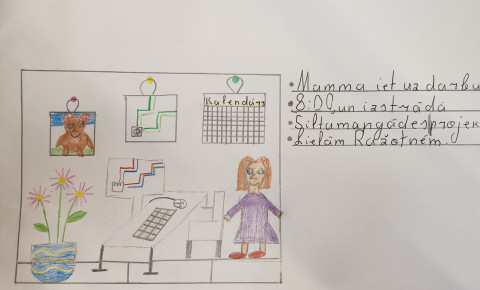 Kalendārs
• Mamma iet uz darbu
• 8:00 un izstrādā
• Siltumapgādes projek
• Lielām Ražotnēm.